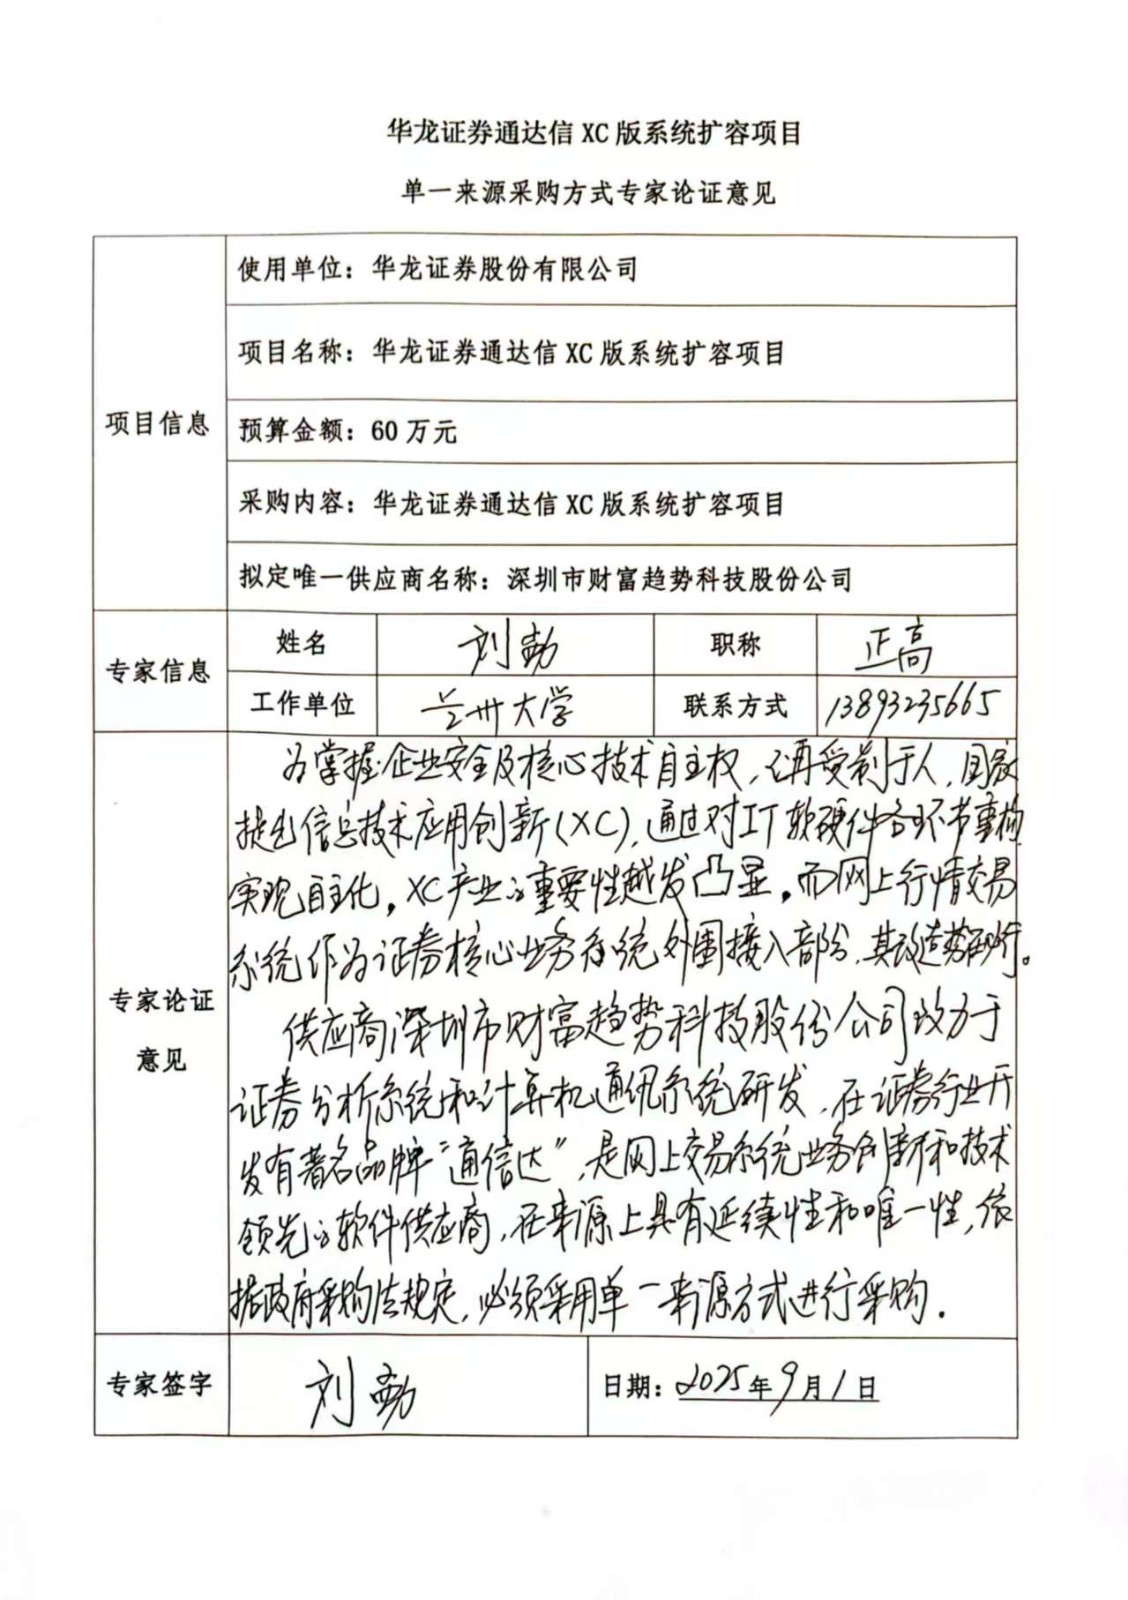 华龙证券通达信 XC 版系统扩容项目
单一来源采购方式专家论证意见
项目信息
使用单位：华龙证券股份有限公司
项目名称：华龙证券通达信 XC 版系统扩容项目
预算金额：60 万元
采购内容：华龙证券通达信 XC 版系统扩容项目
拟定唯一供应商名称：深圳市财富趋势科技股份公司
专家信息
姓名 刘勍 职称 正高
工作单位 兰州大学 联系方式 13893235665
专家论证
意见
为掌握企业安全及核心技术自主权，不再受制于人，国家
提出信息技术应用创新（XC），通过对IT软硬件各环节重构
实现自主化，XC产业的重要性越发凸显。而网上行情交易
系统作为证券核心业务系统外围接入部份，其改造势在必行。
供应商深圳市财富趋势科技股份公司致力于
证券分析系统和计算机通讯系统研发，在证券行业开
发有著名品牌“通信达”，是网上交易系统业务创新和技术
领先的软件供应商，在来源上具有延续性和唯一性，依
据政府采购法规定，必须采用单一来源方式进行采购。
专家签字 刘勍 日期：2025年9月1日